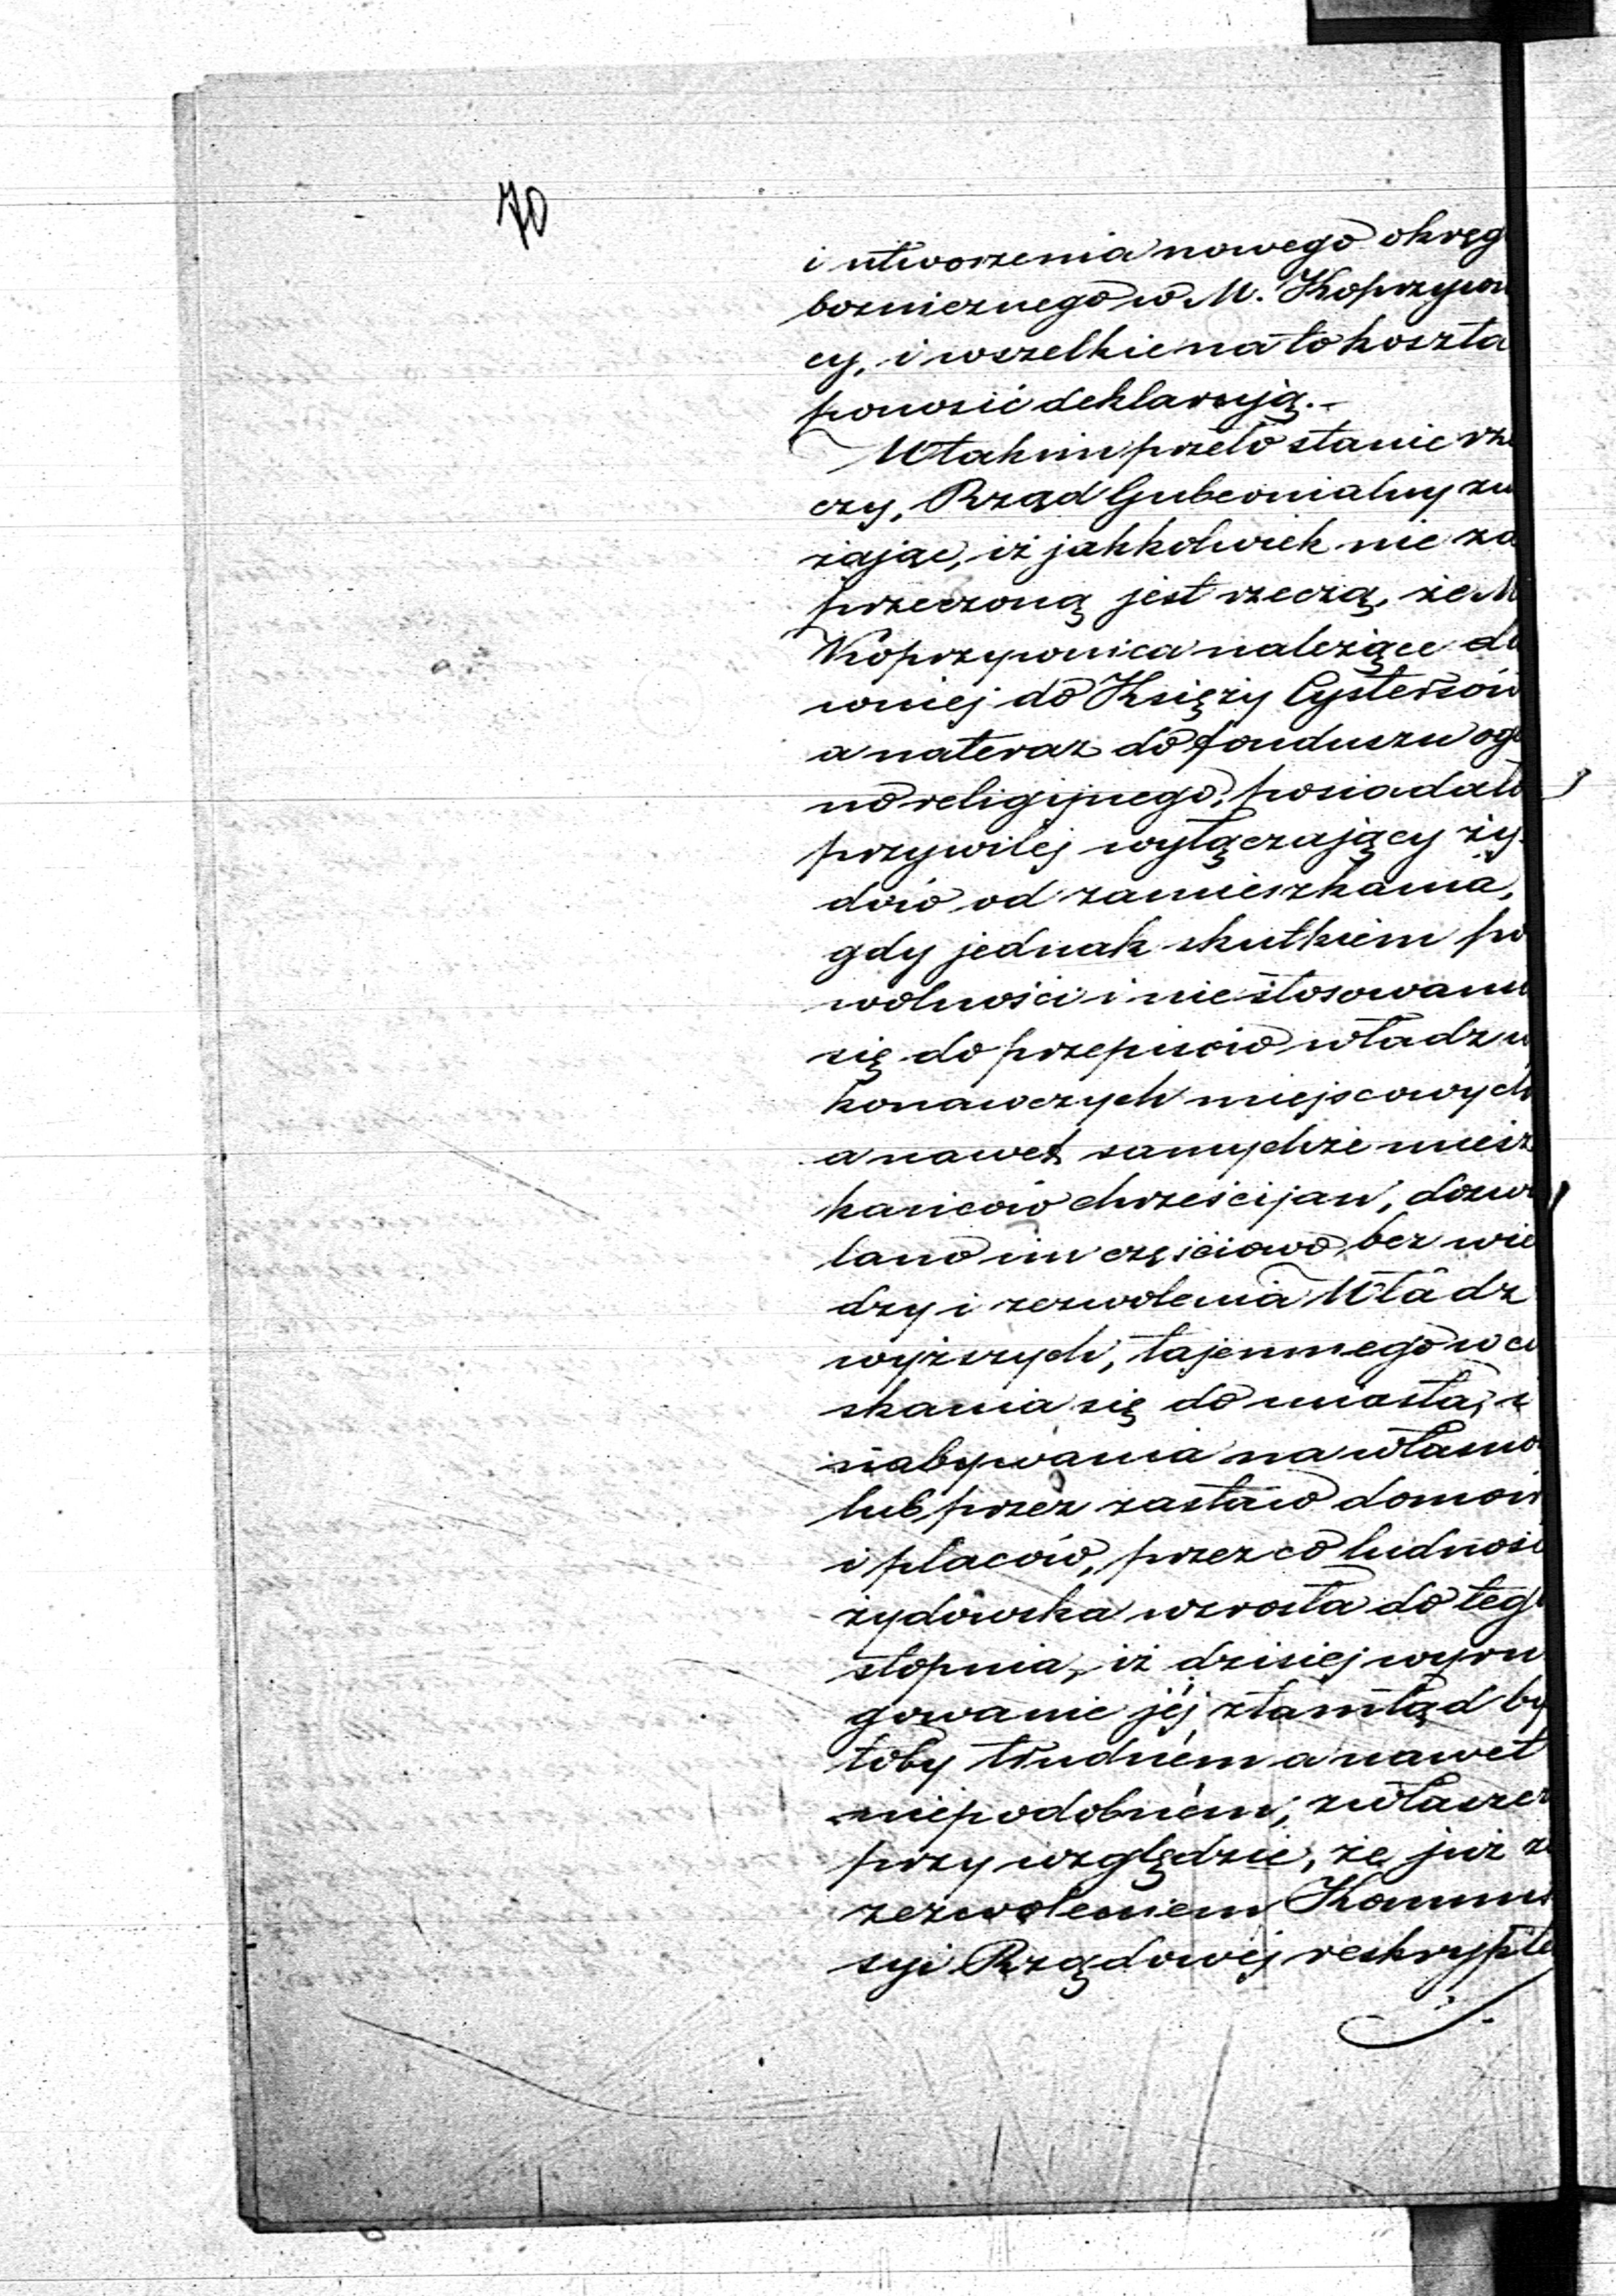 70
i utworzenia nowego okręg
bożnicznego w M. Koprzywn
cy, i wszelkie na to koszta
ponosić deklarują.-
W takim przeto stanie rze
czy, Rząd Gubernialny zu
żając, iż jakkolwiek nie za
przeczoną jest rzeczą, że M
Koprzywnica należące da
wniej do Księży Cystersów
a nateraz do funduszu ogó
no religijnego, posiadało
przywilej wyłączający ży-
dów od zamieszkania,
gdy jednak skutkiem po
wolności i nie stosowania
się do przepisów władz wy
konawczych miejscowych
a nawet samychże miesz
kańców chrześcijan, dozwa
lano im częściowo bez wie
dzy i zezwolenia Władz
wyższych, tajemnego wci
skania się do miasta, i
nabywania na własno
lub przez zastaw domów
i placów, przez co ludność
żydowska wzrosła do tego
stopnia, iż dzisiej wyru
gowanie jéj ztamtąd by
łoby trudném a nawet
niepodobném, zwłaszcz
przy względzie, że już za
zezwoleniem Kommi
syi Rządowéj reskrypte